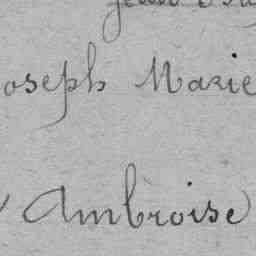 oseph Marie
Ambroise